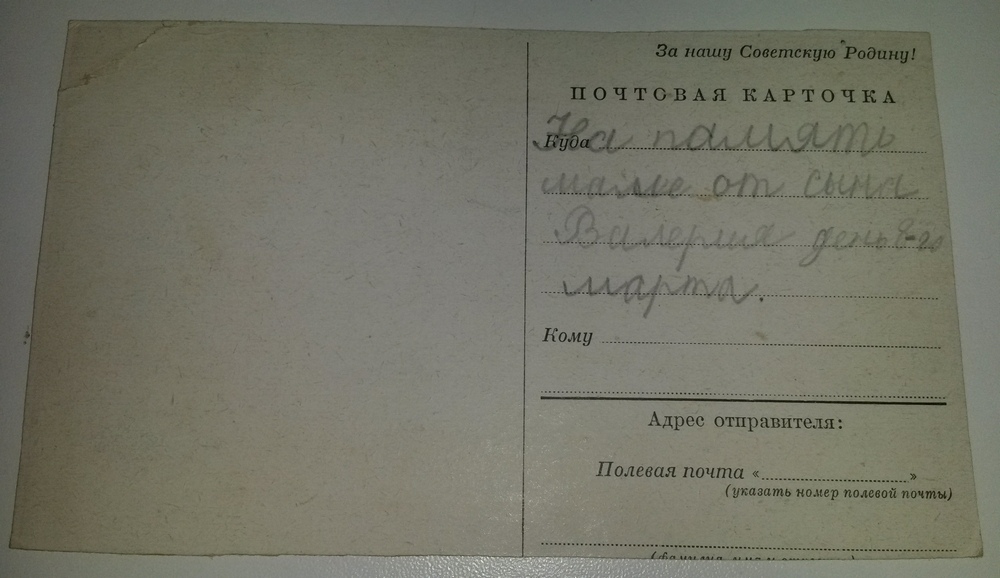 За нашу Советскую Родину!
ПОЧТОВАЯ КАРТОЧКА
Куда
На память
маме от сына
Валерия день 8-го
марта.
Кому
Адрес отправителя:
Полевая почта « »
(указать номер полевой почты)